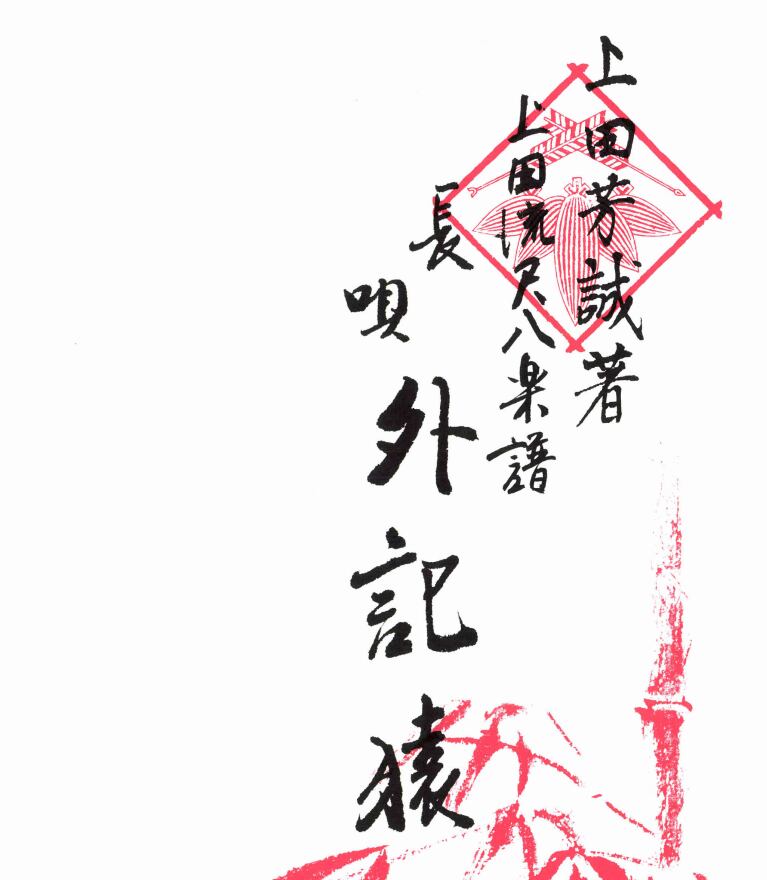 上田芳誠著
上田流尺八楽譜
長唄
外記猿